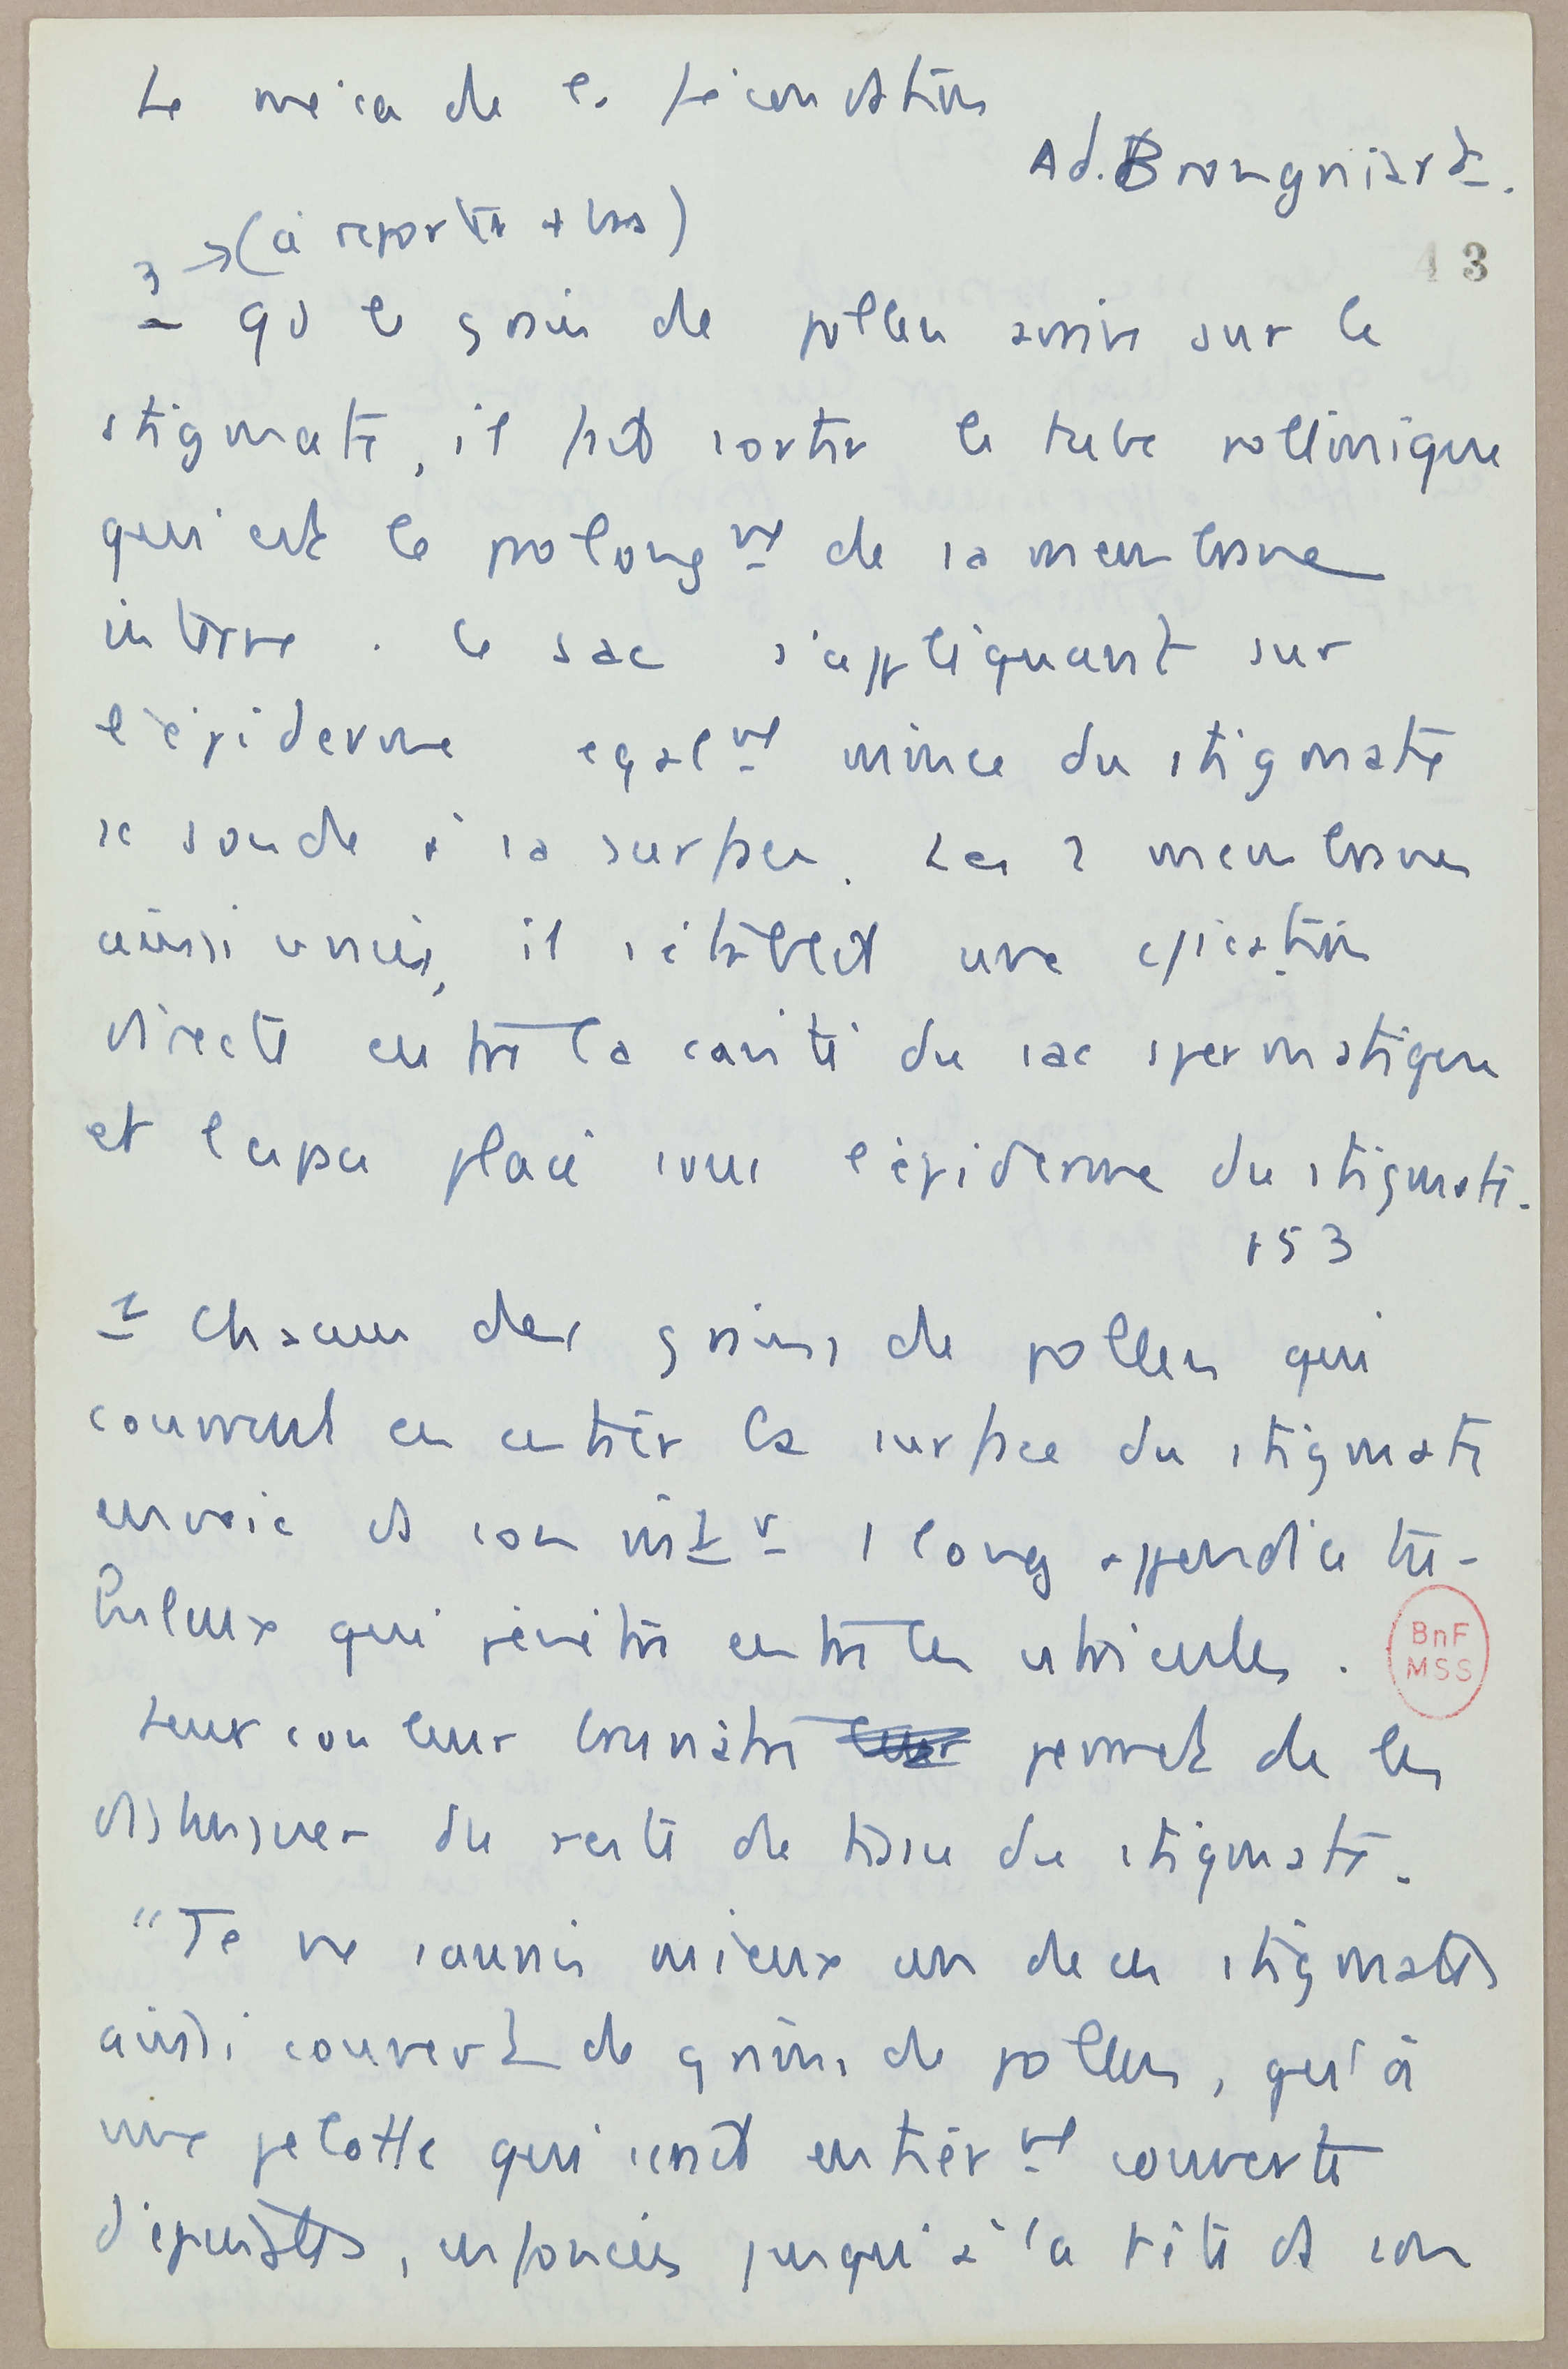 Le méca de la fécondation
Ad. Brongniart.
(à reporter + bas)
43
3 qd le grain de pollen arrive sur le
stigmate, il fait sortir le tube pollinique
qui est le prolongmt de sa membrane
interne. Le sac s'appliquant sur
l'épiderme égalmt mince du stigmate
se soude à sa surface. Les 2 membranes
ainsi unies, il s'établit une
directe entre la cavité du sac spermatique
et l'espace placé sous l'épiderme du stigmate.
153
Chacun des grains de pollen qui
couvrent en entier la surface du stigmate
envoie ds son intr 1 long appendice tu-
buleux qui pénètre entre les utricules.
Leur couleur brunâtre permet de les
distinguer du reste de tissu du stigmate.
"Je ne saurais mieux un de ces stigmates
ainsi couvert de grains de pollen, qu'à
une pelotte qui serait entièrmt couverte
d'épingles, enfoncées jusqu'à la tête ds son
BnF
MSS